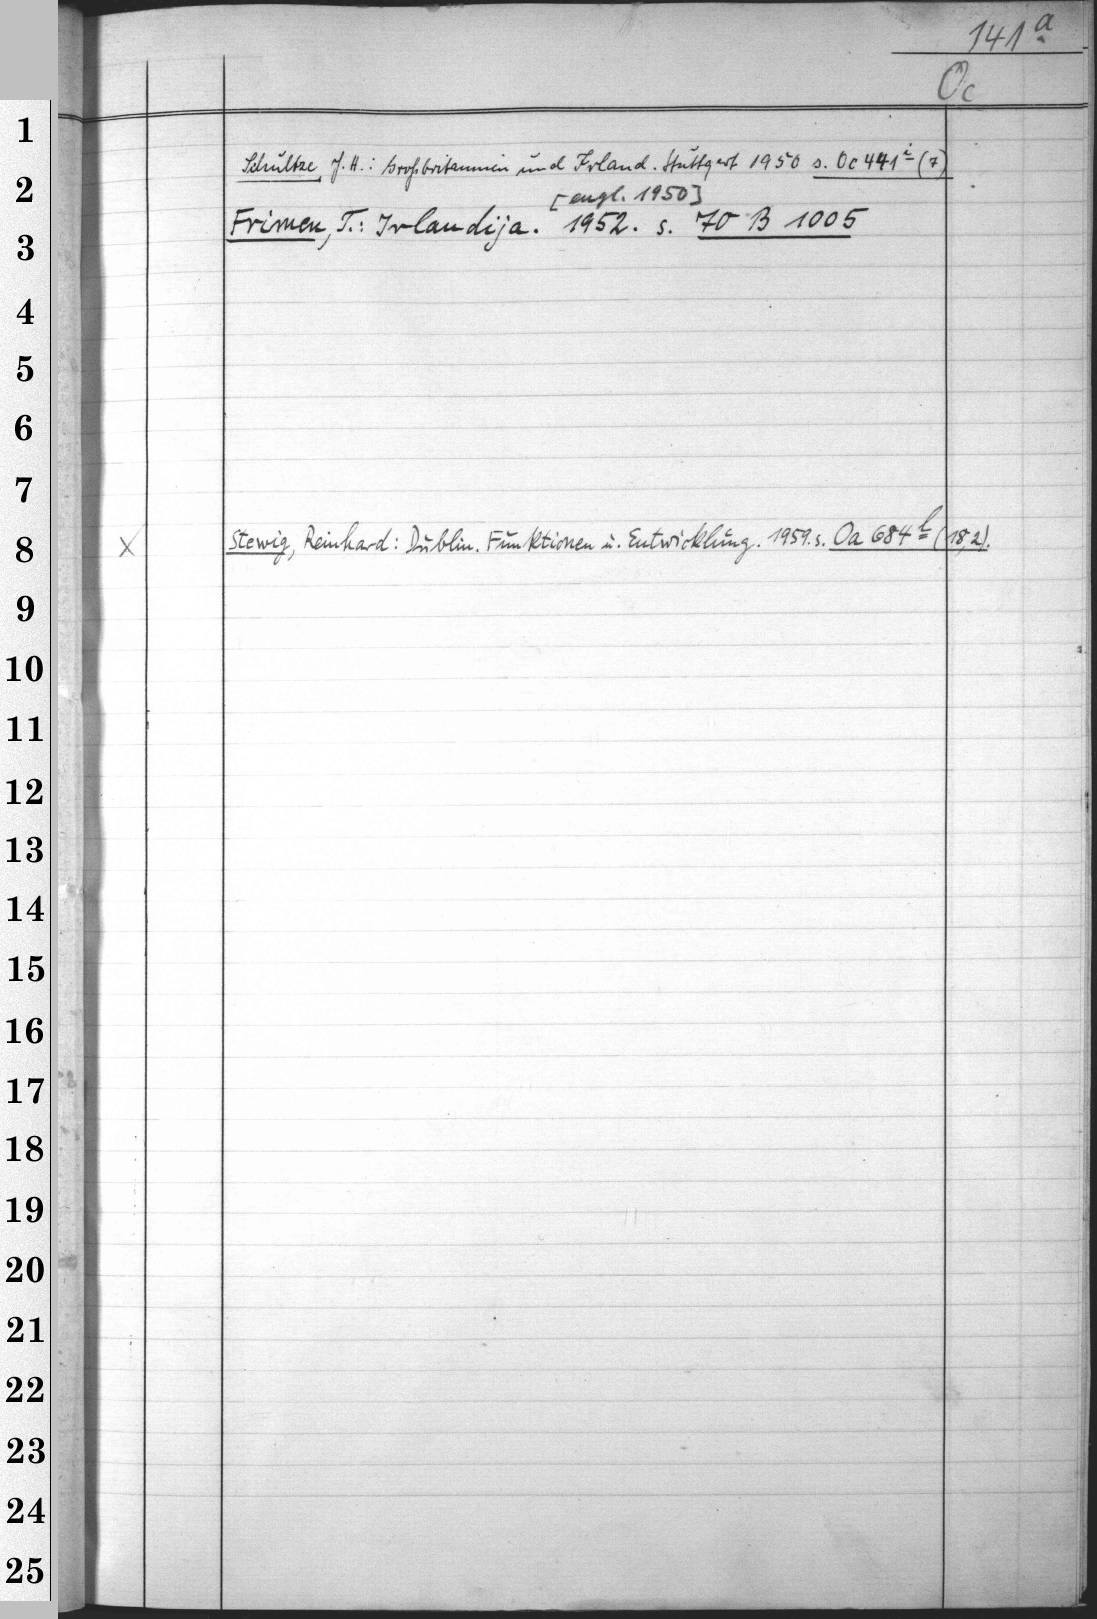 141a
Oc
1
Schultze, J. H.: Großbritannien und Irland. Stuttgart 1950 s. Oc 441 i (7)
2
[engl. 1950]
Frimen, T.: Irlandija. 1952. s. 70 B 1005
3
4
5
6
7
8
x Stewig, Reinhard: Dublin. Funktionen u. Entwicklung. 1959. s. Oa 684 l (18,2).
9
10
11
12
13
14
15
16
17
18
19
20
21
22
23
24
25